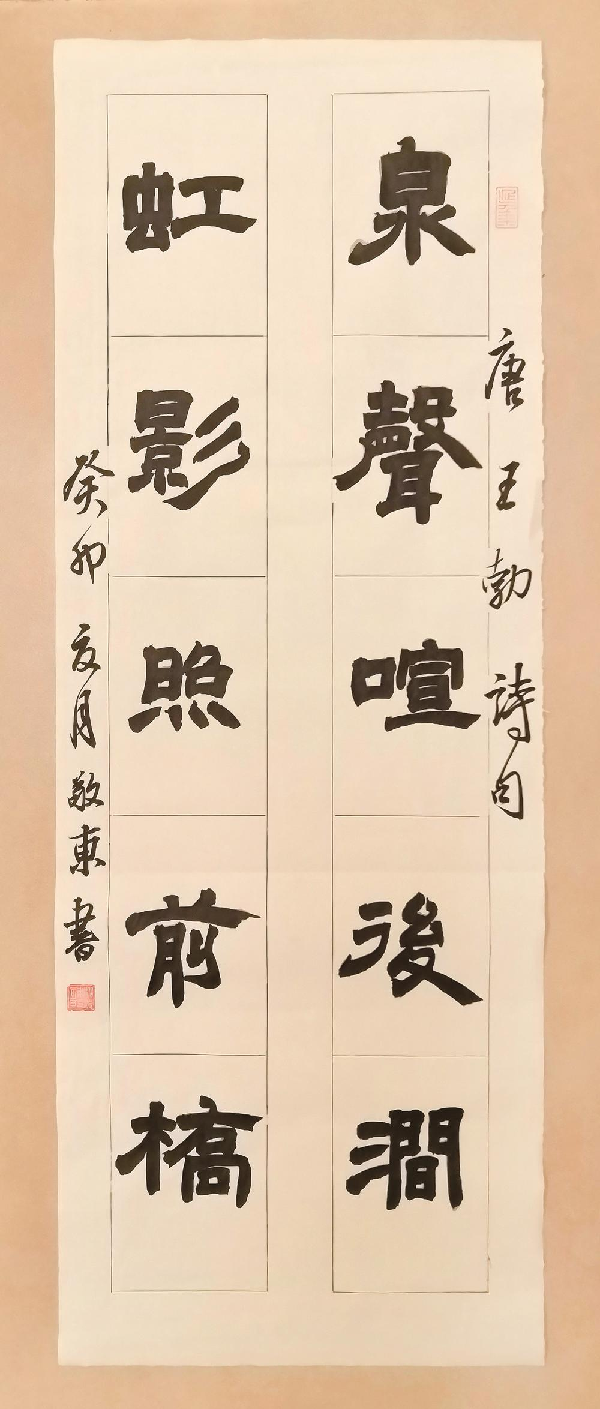 唐王勃詩句
泉聲喧後澗
虹影照前橋
癸卯夏月敬東書